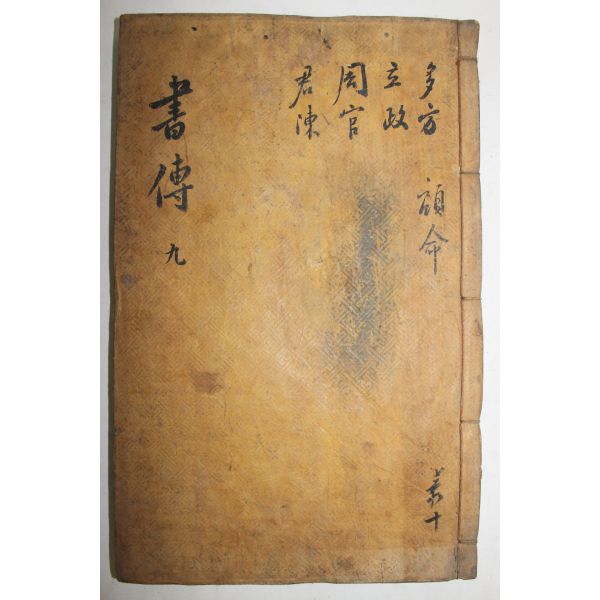 多方
立政
周官
君陳
顧命
書傳 九
十